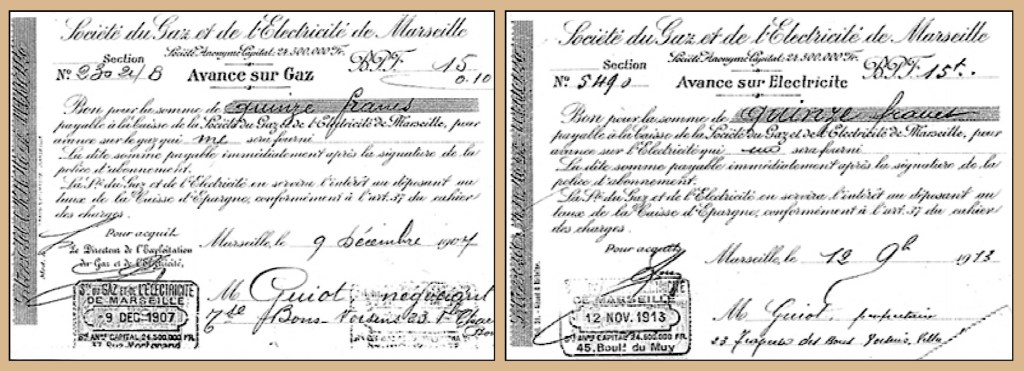 Société du Gaz et de l'Electricité de Marseille
Société Anonyme Capital: 24.500.000 Fr.
Section
B.P.F. 15
0.10
Avance sur Gaz
Bon pour la somme de quinze francs
payable à la Caisse de la Société du Gaz et de l'Electricité de Marseille, pour
avance sur le gaz qui me sera fourni
La dite somme payable immédiatement après la signature de la
police d'abonnement.
La Sté du Gaz et de l'Electricité en servira l'intérêt au déposant au
taux de la Caisse d'Epargne, conformément à l'art. 37 du cahier
des charges.
Pour acquit
Le Directeur de l'Exploitation
du Gaz et de l'Electricité,
Marseille, le 9 Décembre 1907
Sté DU GAZ ET DE L'ÉLECTRICITÉ
DE MARSEILLE
-9 DEC 1907
Sté ANme CAPITAL 24.500.000 FR.
M Guiot,
Bons-Voisins 23
Société du Gaz et de l'Electricité de Marseille
Société Anonyme Capital: 24.500.000 Fr.
Section
B.P.F. 15f.
Nº 5490
Avance sur Electricite
Bon pour la somme de quinze francs
payable à la Caisse de la Société du Gaz et de l'Electricité de Marseille, pour
avance sur l'Electricité qui sera fourni
La dite somme payable immédiatement après la signature de la
police d'abonnement.
La Sté du Gaz et de l'Electricité en servira l'intérêt au déposant au
taux de la Caisse d'Epargne, conformément à l'art. 37 du cahier
des charges.
Pour acquit
Marseille, le 12 9b 1913
DE MARSEILLE
12 NOV. 1913
Sté ANme CAPITAL 24.500.000 FR.
45. Bould. du Muy
M Guiot, propriétaire
23 Traverse des Bons Voisins, Ville